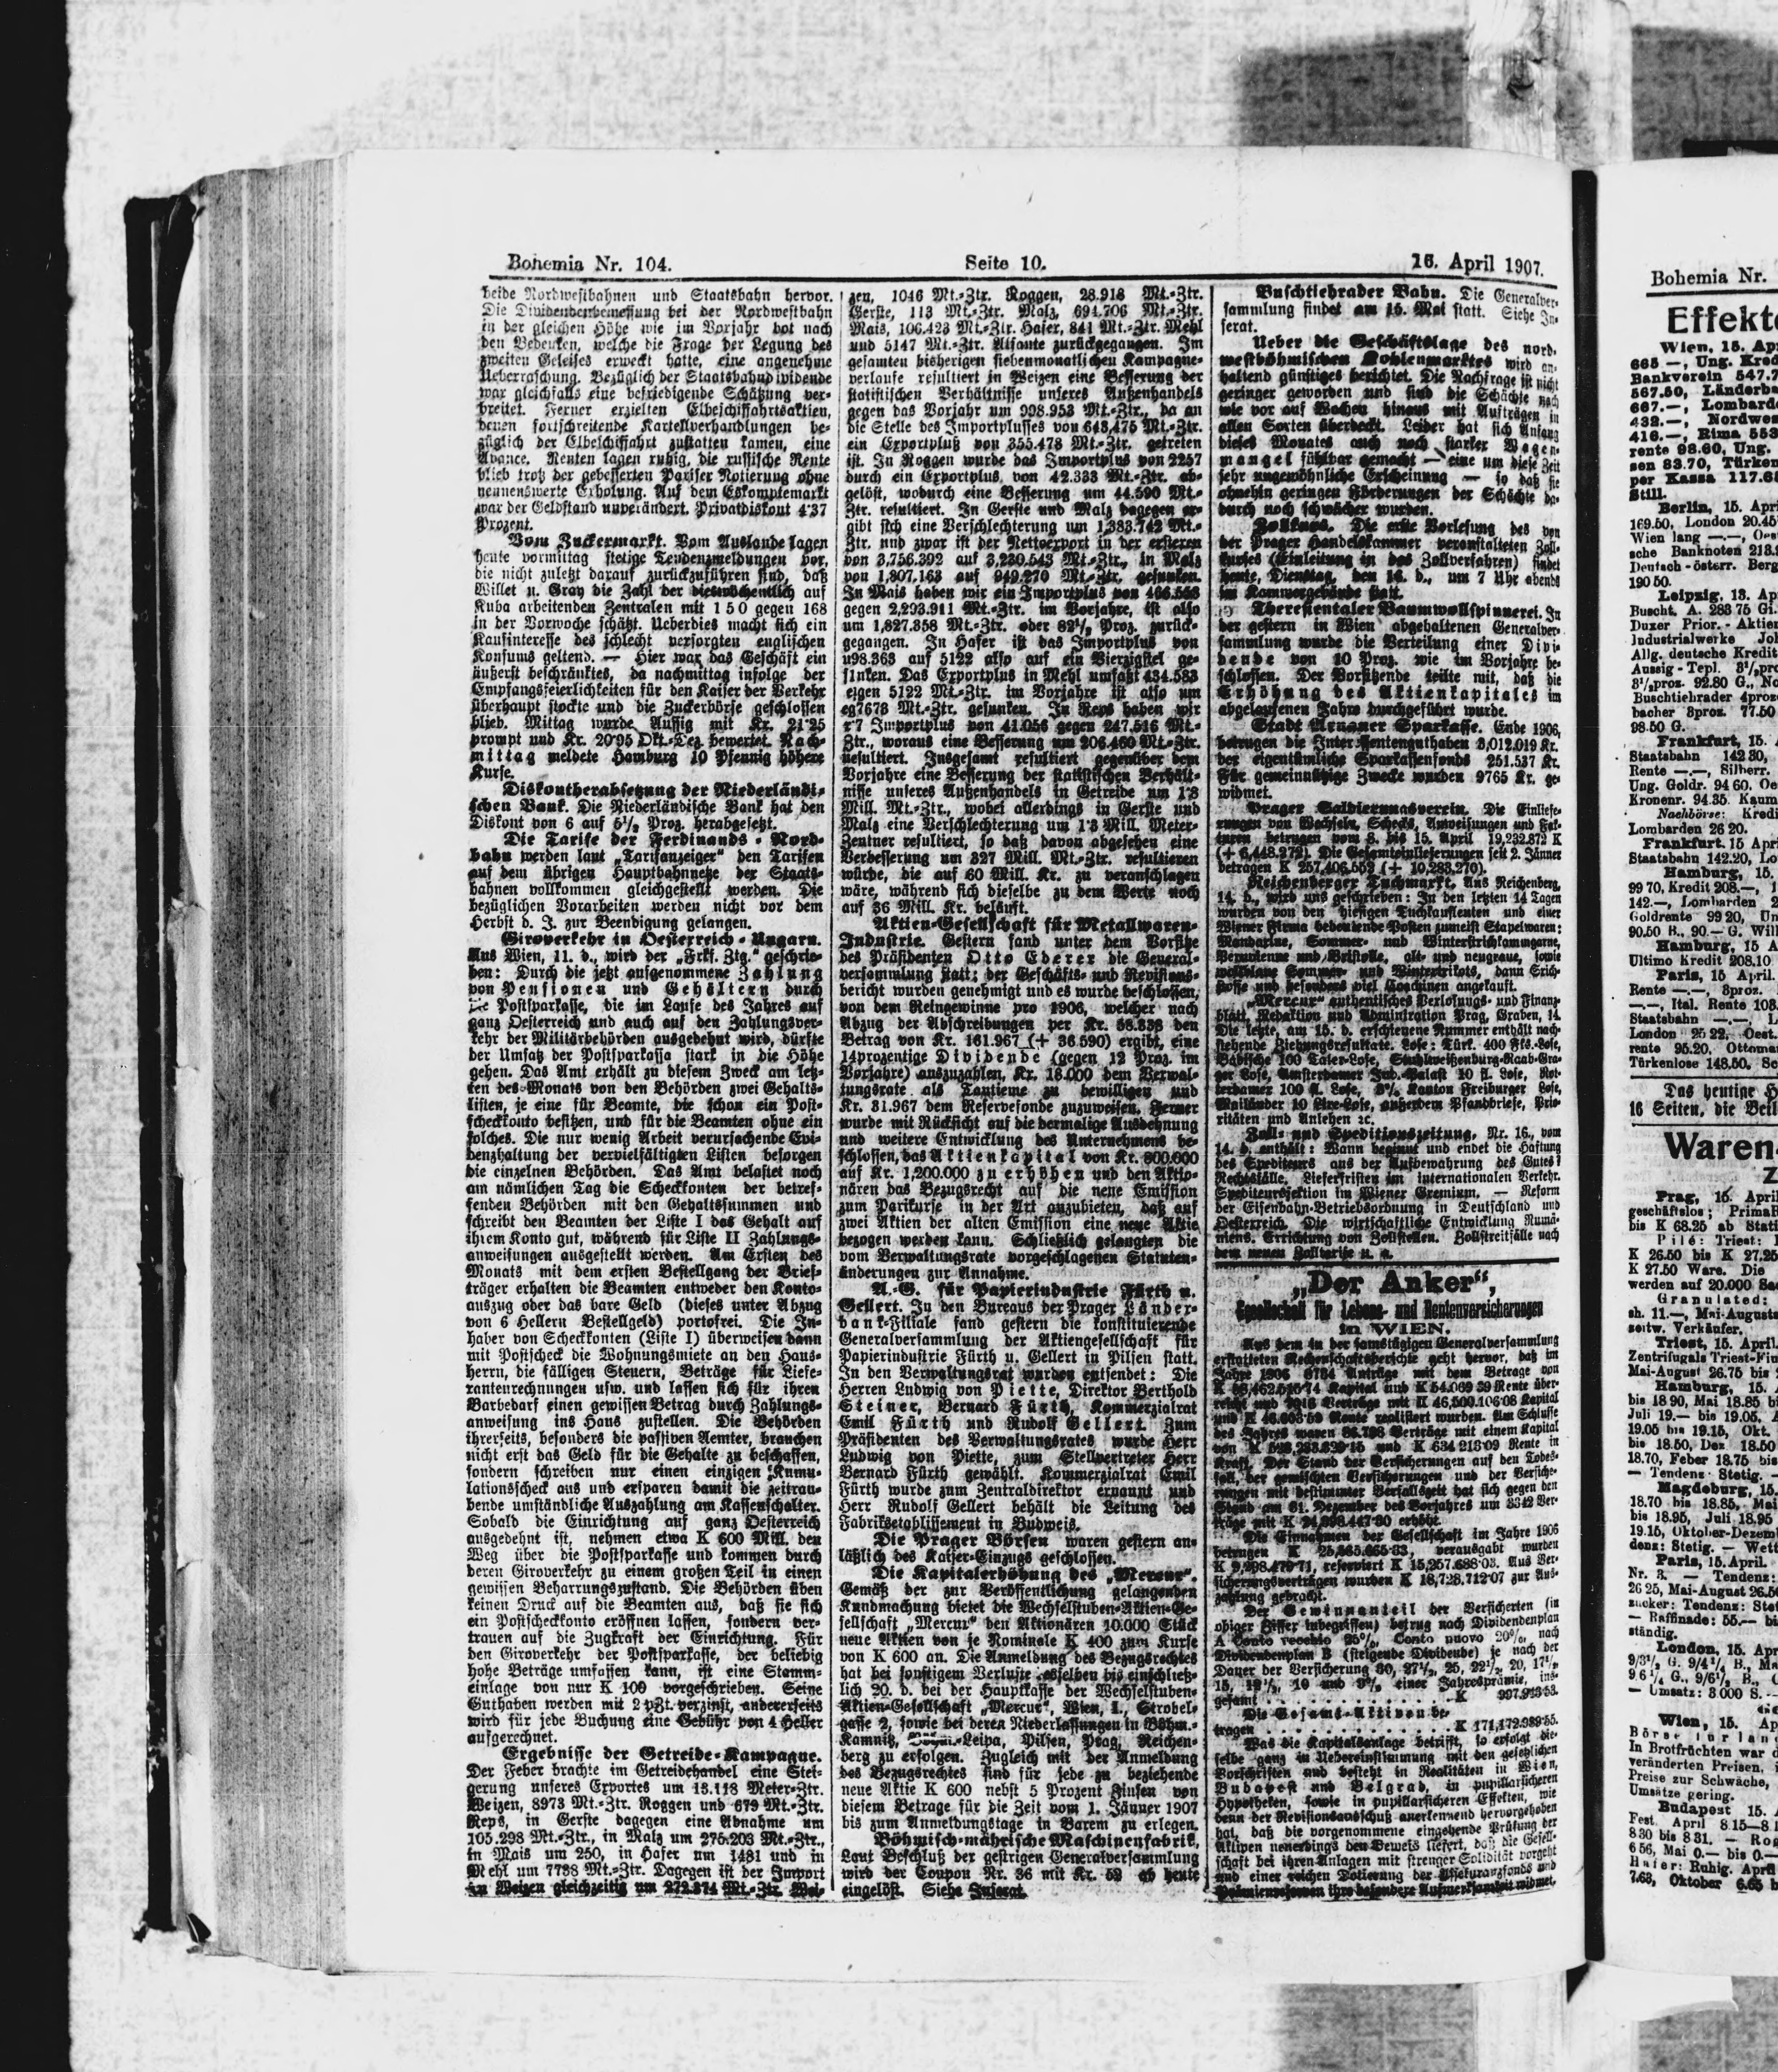 Bohemia Nr. 104.
Seite 10.
16. April 1907.
beide Nordwestbahnen und Staatsbahn hervor.
Die Dividendenbemessung bei der Nordwestbahn
in der gleichen Höhe wie im Vorjahr bot nach
den Bedenken, welche die Frage der Legung des
zweiten Geleises erweckt hatte, eine angenehme
Ueberraschung. Bezüglich der Staatsbahndividende
war gleichfalls eine befriedigende Schätzung ver-
breitet. Ferner erzielten Elbeschiffahrtsaktien,
denen fortschreitende Kartellverhandlungen be-
züglich der Elbeschiffahrt zustatten kamen, eine
Avance. Renten lagen ruhig, die russische Rente
blieb trotz der gebesserten Pariser Notierung ohne
nennenswerte Erholung. Auf dem Eskomptemarkt
war der Geldstand unverändert. Privatdiskont 4·37
Prozent.
Vom Zuckermarkt. Vom Auslande lagen
heute vormittag stetige Tendenzmeldungen vor,
die nicht zuletzt darauf zurückzuführen sind, daß
Willet u. Gray die Zahl der dieswöchentlich auf
Kuba arbeitenden Zentralen mit 150 gegen 168
in der Vorwoche schätzt. Ueberdies macht sich ein
Kaufinteresse des schlecht versorgten englischen
Konsums geltend. — Hier war das Geschäft ein
äußerst beschränktes, da nachmittag infolge der
Empfangsfeierlichkeiten für den Kaiser der Verkehr
überhaupt stockte und die Zuckerbörse geschlossen
blieb. Mittag wurde Aussig mit Kr. 21·25
prompt und Kr. 20·95 Okt.-Dez. bewertet. Nach-
mittag meldete Hamburg 10 Pfennig höhere
Kurse.
Diskontherabsetzung der Niederländi-
schen Bank. Die Niederländische Bank hat den
Diskont von 6 auf 5½ Proz. herabgesetzt.
Die Tarife der Ferdinands-Nord-
bahn werden laut „Tarifanzeiger“ den Tarifen
auf dem übrigen Hauptbahnnetze der Staats-
bahnen vollkommen gleichgestellt werden. Die
bezüglichen Vorarbeiten werden nicht vor dem
Herbst d. J. zur Beendigung gelangen.
Giroverkehr in Oesterreich-Ungarn.
Aus Wien, 11. d., wird der „Frkf. Ztg.“ geschrie-
ben: Durch die jetzt aufgenommene Zahlung
von Pensionen und Gehältern durch
die Postsparkasse, die im Laufe des Jahres auf
ganz Oesterreich und auch auf den Zahlungsver-
kehr der Militärbehörden ausgedehnt wird, dürfte
der Umsatz der Postsparkassa stark in die Höhe
gehen. Das Amt erhält zu diesem Zweck am letz-
ten des Monats von den Behörden zwei Gehalts-
listen, je eine für Beamte, die schon ein Post-
scheckkonto besitzen, und für die Beamten ohne ein
solches. Die nur wenig Arbeit verursachende Evi-
denzhaltung der vervielfältigten Listen besorgen
die einzelnen Behörden. Das Amt belastet noch
am nämlichen Tag die Scheckkonten der betref-
fenden Behörden mit den Gehaltssummen und
schreibt den Beamten der Liste I das Gehalt auf
ihrem Konto gut, während für Liste II Zahlungs-
anweisungen ausgestellt werden. Am Ersten des
Monats mit dem ersten Bestellgang der Brief-
träger erhalten die Beamten entweder den Konto-
auszug oder das bare Geld (dieses unter Abzug
von 6 Hellern Bestellgeld) portofrei. Die In-
haber von Scheckkonten (Liste I) überweisen dann
mit Postscheck die Wohnungsmiete an den Haus-
herrn, die fälligen Steuern, Beträge für Liefe-
rantenrechnungen usw. und lassen sich für ihren
Barbedarf einen gewissen Betrag durch Zahlungs-
anweisung ins Haus zustellen. Die Behörden
ihrerseits, besonders die passiven Aemter, brauchen
nicht erst das Geld für die Gehalte zu beschaffen,
sondern schreiben nur einen einzigen Kumu-
lationsscheck aus und ersparen damit die zeitrau-
bende umständliche Auszahlung am Kassenschalter.
Sobald die Einrichtung auf ganz Oesterreich
ausgedehnt ist, nehmen etwa K 600 Mill. den
Weg über die Postsparkasse und kommen durch
deren Giroverkehr zu einem großen Teil in einen
gewissen Beharrungszustand. Die Behörden üben
keinen Druck auf die Beamten aus, daß sie sich
ein Postscheckkonto eröffnen lassen, sondern ver-
trauen auf die Zugkraft der Einrichtung. Für
den Giroverkehr der Postsparkasse, der beliebig
hohe Beträge umfassen kann, ist eine Stamm-
einlage von nur K 100 vorgeschrieben. Seine
Guthaben werden mit 2 pZt. verzinst, andererseits
wird für jede Buchung eine Gebühr von 4 Heller
aufgerechnet.
Ergebnisse der Getreide-Kampagne.
Der Feber brachte im Getreidehandel eine Stei-
gerung unseres Exportes um 13.118 Meter-Ztr.
Weizen, 8973 Mt.-Ztr. Roggen und 679 Mt.-Ztr.
Reps, in Gerste dagegen eine Abnahme um
105.298 Mt.-Ztr., in Malz um 275.203 Mt.-Ztr.,
in Mais um 250, in Hafer um 1481 und in
Mehl um 7788 Mt.-Ztr. Dagegen ist der Import
in Weizen gleichzeitig um 272.874 Mt.-Ztr. Wei-
zen, 1046 Mt.-Ztr. Roggen, 28.918 Mt.-Ztr.
Gerste, 113 Mt.-Ztr. Malz, 694.706 Mt.-Ztr.
Mais, 106.423 Mt.-Ztr. Hafer, 841 Mt.-Ztr. Mehl
und 5147 Mt.-Ztr. Alsante zurückgegangen. Im
gesamten bisherigen siebenmonatlichen Kampagne-
verlaufe resultiert in Weizen eine Besserung der
statistischen Verhältnisse unseres Außenhandels
gegen das Vorjahr um 998.953 Mt.-Ztr., da an
die Stelle des Importplusses von 643,475 Mt.-Ztr.
ein Exportpluß von 355.478 Mt.-Ztr. getreten
ist. In Roggen wurde das Importplus von 2257
durch ein Exportplus von 42.333 Mt.-Ztr. ab-
gelöst, wodurch eine Besserung um 44.590 Mt.-
Ztr. resultiert. In Gerste und Malz dagegen er-
gibt sich eine Verschlechterung um 1,383.742 Mt.-
Ztr. und zwar ist der Nettoexport in der ersteren
von 3,756.392 auf 3,230.543 Mt.-Ztr., in Malz
von 1,807.163 auf 949.270 Mt.-Ztr. gesunken.
In Mais haben wir ein Importplus von 466.553
gegen 2,293.911 Mt.-Ztr. im Vorjahre, ist also
um 1,827.358 Mt.-Ztr. oder 82½ Proz. zurück-
gegangen. In Hafer ist das Importplus von
u98.363 auf 5122 also auf ein Vierzigstel ge-
s1nken. Das Exportplus in Mehl umfaßt 434.583
eigen 5122 Mt.-Ztr. im Vorjahre ist also um
eg7678 Mt.-Ztr. gesunken. In Reps haben wir
r7 Importplus von 41.056 gegen 247.516 Mt.-
Ztr., woraus eine Besserung um 206.460 Mt.-Ztr.
nesultiert. Insgesamt resultiert gegenüber dem
Vorjahre eine Besserung der statistischen Verhält-
nisse unseres Außenhandels in Getreide um 1·8
Mill. Mt.-Ztr., wobei allerdings in Gerste und
Malz eine Verschlechterung um 1·3 Mill. Meter-
Zentner resultiert, so daß davon abgesehen eine
Verbesserung um 327 Mill. Mt.-Ztr. resultieren
würde, die auf 60 Mill. Kr. zu veranschlagen
wäre, während sich dieselbe zu dem Werte noch
auf 36 Mill. Kr. beläuft.
Aktien-Gesellschaft für Metallwaren-
Industrie. Gestern fand unter dem Vorsitze
des Präsidenten Otto Ederer die General-
versammlung statt; der Geschäfts- und Revisions-
bericht wurden genehmigt und es wurde beschlossen,
von dem Reingewinne pro 1906, welcher nach
Abzug der Abschreibungen per Kr. 58.838 den
Betrag von Kr. 161.967 (+ 36.590) ergibt, eine
14prozentige Dividende (gegen 12 Proz. im
Vorjahre) auszuzahlen, Kr. 18.000 dem Verwal-
tungsrate als Tantieme zu bewilligen und
Kr. 31.967 dem Reservefonde zuzuweisen. Ferner
wurde mit Rücksicht auf die dermalige Ausdehnung
und weitere Entwicklung des Unternehmens be-
schlossen, das Aktienkapital von Kr. 800.000
auf Kr. 1,200.000 zu erhöhen und den Aktio-
nären das Bezugsrecht auf die neue Emission
zum Parikurse in der Art anzubieten, daß auf
zwei Aktien der alten Emission eine neue Aktie
bezogen werden kann. Schließlich gelangten die
vom Verwaltungsrate vorgeschlagenen Statuten-
änderungen zur Annahme.
A.-G. für Papierindustrie Fürth u.
Gellert. In den Bureaus der Prager Länder-
bank-Filiale fand gestern die konstituierende
Generalversammlung der Aktiengesellschaft für
Papierindustrie Fürth u. Gellert in Pilsen statt.
In den Verwaltungsrat wurden entsendet: Die
Herren Ludwig von Piette, Direktor Berthold
Steiner, Bernard Fürth, Kommerzialrat
Emil Fürth und Rudolf Gellert. Zum
Präsidenten des Verwaltungsrates wurde Herr
Ludwig von Piette, zum Stellvertreter Herr
Bernard Fürth gewählt. Kommerzialrat Emil
Fürth wurde zum Zentraldirektor ernannt und
Herr Rudolf Gellert behält die Leitung des
Fabriksetablissement in Budweis.
Die Prager Börsen waren gestern an-
läßlich des Kaiser-Einzugs geschlossen.
Die Kapitalerhöhung des „Mercur“.
Gemäß der zur Veröffentlichung gelangenden
Kundmachung bietet die Wechselstuben-Aktien-Ge-
sellschaft „Mercur“ den Aktionären 10.000 Stück
neue Aktien von je Nominale K 400 zum Kurse
von K 600 an. Die Anmeldung des Bezugsrechtes
hat bei sonstigem Verluste desselben bis einschließ-
lich 20. d. bei der Hauptkasse der Wechselstuben-
Aktien-Gesellschaft „Mercur“, Wien, I., Strobel-
gasse 2, sowie bei deren Niederlassungen in Böhm.-
Kamnitz, Böhm.-Leipa, Pilsen, Prag, Reichen-
berg zu erfolgen. Zugleich mit der Anmeldung
des Bezugsrechtes sind für jede zu beziehende
neue Aktie K 600 nebst 5 Prozent Zinsen von
diesem Betrage für die Zeit vom 1. Jänner 1907
bis zum Anmeldungstage in Barem zu erlegen.
Böhmisch-mährische Maschinenfabrik.
Laut Beschluß der gestrigen Generalversammlung
wird der Coupon Nr. 36 mit Kr. 52 ab heute
eingelöst. Siehe Inserat.
Buschtiehrader Bahn. Die Generalver-
sammlung findet am 15. Mai statt. Siehe In-
serat.
Ueber die Geschäftslage des nord-
westböhmischen Kohlenmarktes wird an-
haltend günstiges berichtet. Die Nachfrage ist nicht
geringer geworden und sind die Schächte nach
wie vor auf Wochen hinaus mit Aufträgen in
allen Sorten überdeckt. Leider hat sich Anfang
dieses Monates auch noch starker Wagen-
mangel fühlbar gemacht — eine um diese Zeit
sehr ungewöhnliche Erscheinung — so daß sie
ohnehin geringen Förderungen der Schächte da-
durch noch schwächer wurden.
Zollkurs. Die erste Vorlesung des von
der Prager Handelskammer veranstalteten Zoll-
kurses (Einleitung in das Zollverfahren) findet
heute, Dienstag, den 16. d., um 7 Uhr abends
im Kammergebäude statt.
Theresientaler Baumwollspinnerei. In
der gestern in Wien abgehaltenen Generalver-
sammlung wurde die Verteilung einer Divi-
dende von 10 Proz. wie im Vorjahre be-
schlossen. Der Vorsitzende teilte mit, daß die
Erhöhung des Aktienkapitales im
abgelaufenen Jahre durchgeführt wurde.
Stadt Arnauer Sparkasse. Ende 1906,
betrugen die Interessentenguthaben 3,012.019 Kr.
der eigentümliche Sparkassenfonds 251.537 Kr.
Für gemeinnützige Zwecke wurden 9765 Kr. ge-
widmet.
Prager Saldierungsverein. Die Einliefe-
rungen von Wechseln, Schecks, Anweisungen und Fak-
turen betrugen vom 8. bis 15. April 19,232.872 K
(+ 6,448.272). Die Gesamteinlieferungen seit 2. Jänner
betragen K 257,406.552 (+ 10,283.270).
Reichenberger Tuchmarkt. Aus Reichenberg,
14. d., wird uns geschrieben: In den letzten 14 Tagen
wurden von den hiesigen Tuchkaufleuten und einer
Wiener Firma bedeutende Posten zumeist Stapelwaren:
Mandarine, Sommer- und Winterstrichkammgarne,
Peruvienne und Bristolle, alt- und neugraue, sowie
wollblaue Sommer- und Wintertrikots, dann Strich-
stoffe und besonders viel Coachinen angekauft.
„Mercur“ authentisches Verlosungs- und Finanz-
blatt, Redaktion und Administration Prag, Graben, 14.
Die letzte, am 15. d. erschienene Nummer enthält nach-
stehende Ziehungsresultate. Lose: Türk. 400 Fts.-Lose,
Badische 100 Taler-Lose, Stuhlweißenburg-Raab-Gra-
zer Lose, Amsterdamer Ind.-Palast 10 fl. Lose, Rot-
terdamer 100 fl. Lose, 3% Kanton Freiburger Lose,
Mailänder 10 Lire-Lose, außerdem Pfandbriefe, Prio-
ritäten und Anlehen 2c.
Zoll- und Speditionszeitung. Nr. 16., vom
14. d. enthält: Wann beginnt und endet die Haftung
des Spediteurs aus der Aufbewahrung des Gutes?
Rechtsfälle. Lieferfristen im internationalen Verkehr.
Spediteursektion im Wiener Gremium. — Reform
der Eisenbahn-Betriebsordnung in Deutschland und
Oesterreich. Die wirtschaftliche Entwicklung Rumä-
niens. Errichtung von Zollstellen. Zollstreitfälle nach
dem neuen Zolltarife u. a.
„Der Anker“,
Gesellschaft für Lebens- und Rentenversicherungen
in WIEN.
Aus dem in der samstägigen Generalversammlung
erstatteten Rechenschaftsberichte geht hervor, daß im
Jahre 1906 8784 Anträge mit dem Betrage von
Kapital und K 54.069·39 Rente über-
reicht und Verträge mit K 46,500.106·08 Kapital
und K 46.603·59 Rente realisiert wurden. Am Schlusse
des Jahres waren 86.798 Verträge mit einem Kapital
von und K 634.213·09 Rente in
Kraft. Der Stand der Versicherungen auf den Todes-
fall, der gemischten Versicherungen und der Versiche-
rungen mit bestimmter Verfallszeit hat sich gegen den
Stand am 31. Dezember des Vorjahres um 3342 Ver-
träge mit K 24,898.447·30 erhöht.
Die Einnahmen der Gesellschaft im Jahre 1906
betrugen K 25,565.665·33, verausgabt wurden
K 9,298.479·71, reserviert K 15,257.688·03. Aus Ver-
sicherungsverträgen wurden K 18,728.712·07 zur Aus-
zahlung gebracht.
Der Gewinnanteil der Versicherten (in
obiger Ziffer inbegriffen) betrug nach Dividendenplan
A Conto vecchio 25%, Conto nuovo 20%, nach
Dividendenplan B (steigende Dividende) je nach der
Dauer der Versicherung 30, 27½, 25, 22½, 20, 17½,
15, 12½, 10 und 9% einer Jahresprämie, ins-
gesamt . . . . . . . . . . K 997.953·53.
Die Gesamt-Aktiven be-
tragen . . . . . . . . . . K 171,172.989·55.
Was die Kapitalsanlage betrifft, so erfolgt die-
selbe ganz in Uebereinstimmung mit den gesetzlichen
Vorschriften und besteht in Realitäten in Wien,
Budapest und Belgrad, in pupillarsicheren
Hypotheken, sowie in pupillarsicheren Effekten, wie
denn der Revisionsausschuß anerkennend hervorgehoben
hat, daß die vorgenommene eingehende Prüfung der
Aktiven neuerdings den Beweis liefert, daß die Gesell-
schaft bei ihren Anlagen mit strenger Solidität vorgeht
und einer reichen Dotierung der Assekuranzfonds und
Prämienreserven ihre besondere Aufmerksamkeit widmet.
Bohemia Nr.
Effekte
Wien, 15. Ap
665 —, Ung. Kred
Bankverein 547.7
567.50, Länderba
667.—, Lombard
432.—, Nordwes
416.—, Rima 553
rente 98.60, Ung.
sen 83.70, Türken
per Kassa 117.6
Still.
Berlin, 15. Apri
169.50, London 20.45
Wien lang —.—, Oes
sche Banknoten 213.
Deutsch-österr. Berg
190 50.
Leipzig, 13. Ap
Buscht. A. 283 75 G.
Duxer Prior.-Aktien
Industrialwerke Joh
Allg. deutsche Kredit
Aussig-Tepl. 3½pro
3½proz. 92.80 G., No
Buschtiehrader 4proz
bacher 3proz. 77.50
98.50 G.
Frankfurt, 15.
Staatsbahn 142 30,
Rente —.—, Silberr.
Ung. Goldr. 94 60. Oe
Kronenr. 94.35. Kaum
Nachbörse: Kredi
Lombarden 26 20.
Frankfurt. 15 Apri
Staatsbahn 142.20, Lo
Hamburg, 15.
99 70, Kredit 208.—, 1
142.—, Lombarden 2
Goldrente 99 20, Un
90.50 B., 90.— G. Will
Hamburg, 15 A
Ultimo Kredit 208.10
Paris, 15 April.
Rente —.—, 3proz.
—.—, Ital. Rente 103.
Staatsbahn —.—, L
London 25 22, Oest.
rente 95.20, Ottoman
Türkenlose 148.50. Sc
Das heutige H
16 Seiten, die Beil
Waren-
Z
Prag, 15. April
geschäftslos; PrimaR
bis K 68.25 ab Stati
Pilé: Triest:
K 26.50 bis K 27.25
K 27.50 Ware. Die
werden auf 20.000 Sa
Granulated:
sh. 11.—, Mai-Auguste
seitw. Verkäufer.
Triest, 15. April.
Zentrifugals Triest-Fiu
Mai-August 26.75 bis
Hamburg, 15.
bis 18 90, Mai 18.85 bi
Juli 19.— bis 19.05, A
19.05 bis 19.15, Okt.
bis 18.50, Dez 18.50
18.70, Feber 18.75 bis
— Tendenz: Stetig. —
Magdeburg, 15.
18.70 bis 18.85, Mai
bis 18.95, Juli 18.95
19.15, Oktober-Dezem
denz: Stetig. — Wett
Paris, 15. April.
Nr. 3. — Tendenz:
26 25, Mai-August 26.50
zucker: Tendenz: Ste
— Raffinade: 55.— bi
ständig.
London, 15. Apr
9/3½ G. 9/4¼ B., Ma
9 6¼ G., 9/6½ B., O
— Umsatz: 3.000 S. -
Wien, 15. Ap
Börse für lan
In Brotfrüchten war d
veränderten Preisen, i
Preise zur Schwäche,
Umsätze gering.
Budapest 15. A
Fest. April 8.15—8.1
8 30 bis 8 31. — Rog
6 56, Mai 0.— bis 0.—
Hafer: Ruhig. April
7.63, Oktober 6.65 b